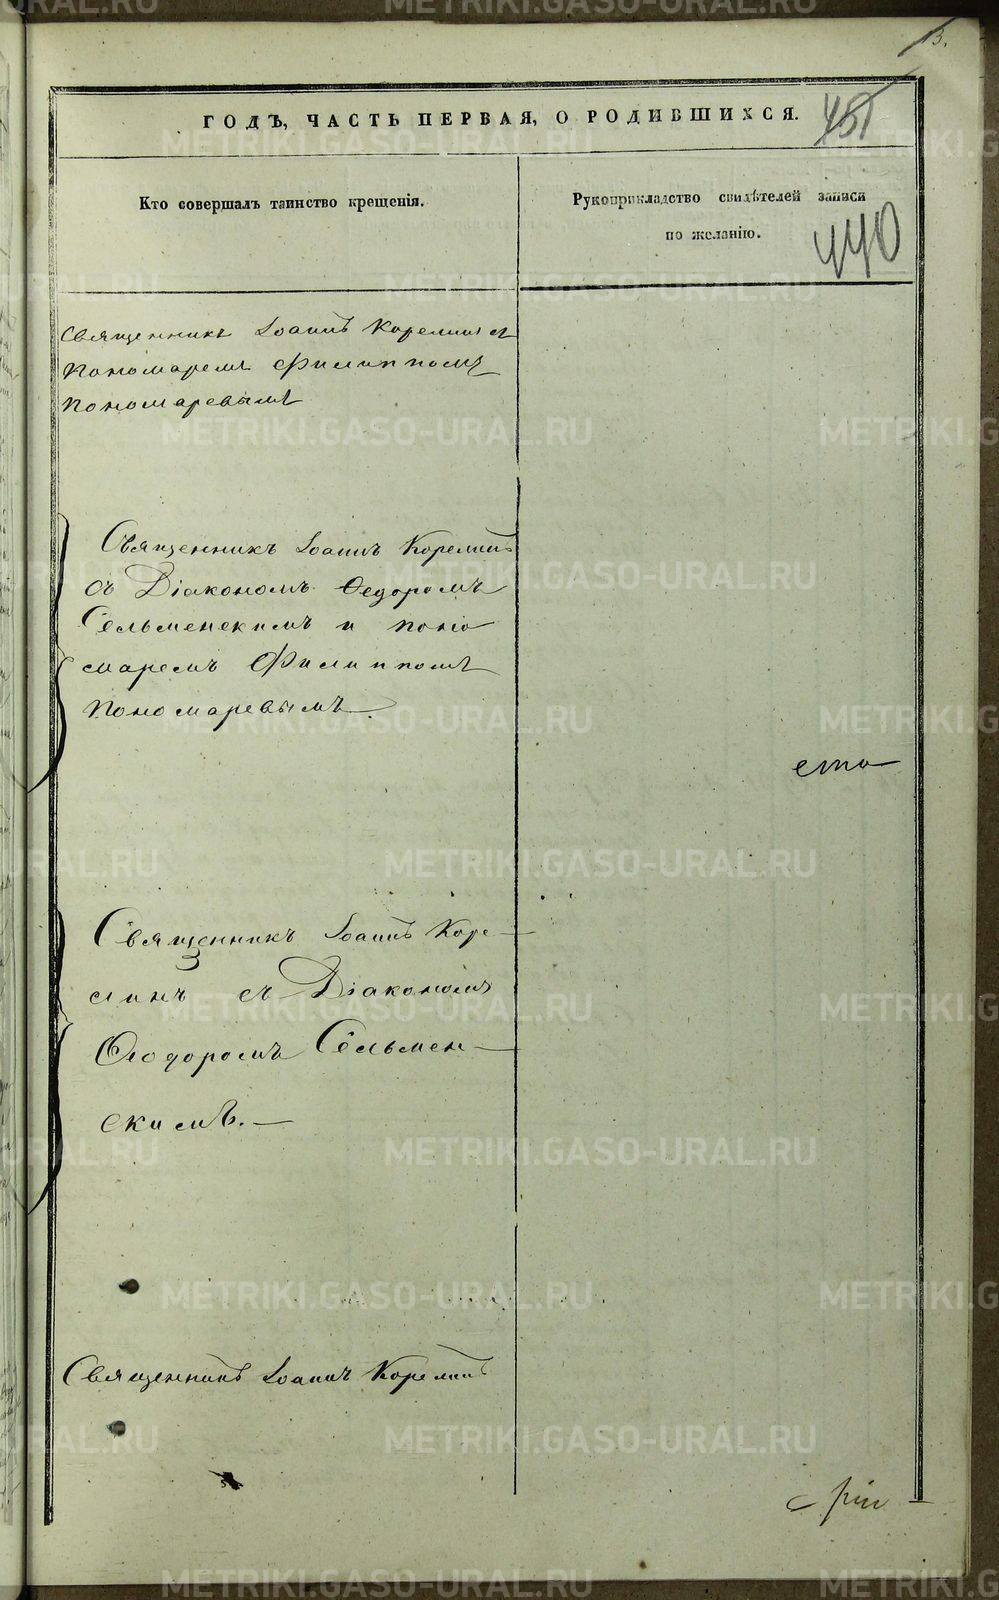 3.
ГОДЪ, ЧАСТЬ ПЕРВАЯ, О РОДИВШИХСЯ.
451
Кто совершалъ таинство крещенія.
Рукоприкладство свидѣтелей записи
по желанію.
440
Священникъ Іоаннъ Корелинъ съ
Пономаремъ Филиппомъ
Пономаревымъ
Священникъ Іоаннъ Корелинъ
съ Діакономъ Ѳедоромъ
Сельменскимъ и поно
маремъ Филиппомъ
Пономаревымъ.
ста
Священникъ Іоаннъ Коре-
линъ съ Діакономъ
Ѳеодоромъ Сельмен-
скимъ.—
Священникъ Іоаннъ Корелинъ
METRIKI.GASO-URAL.RU